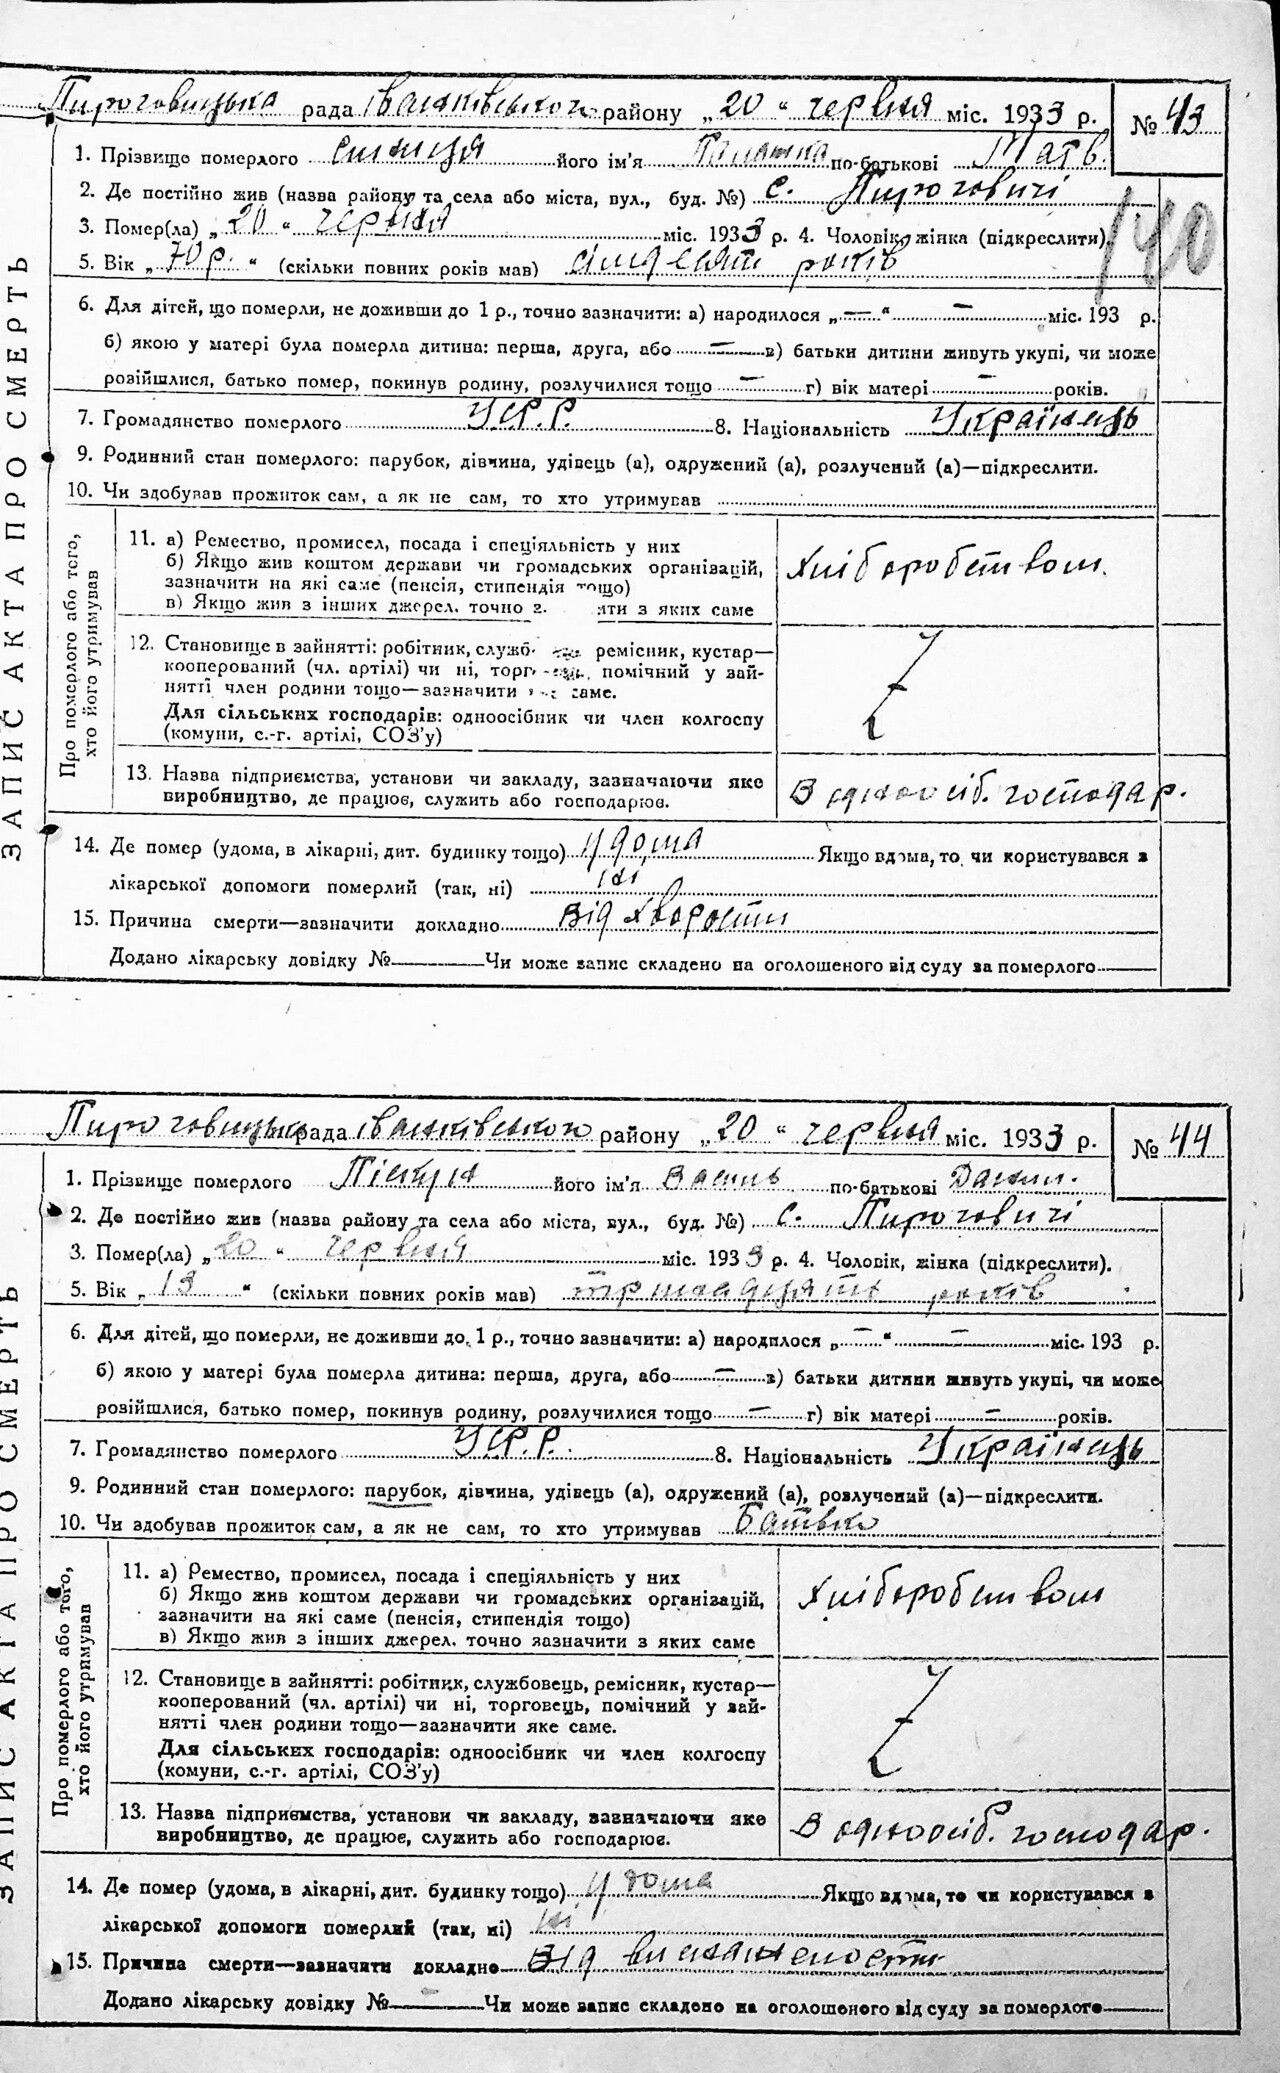 Пироговицька рада Іванківського району „20“ червня міс. 1933 р. № 43
1. Прізвище померлого Синиця його ім'я по-батькові Матв.
2. Де постійно жив (назва району та села або міста, вул., буд. №) с. Пироговичі
3. Помер(ла) „20“ червня міс. 1933 р. 4. Чоловік, жінка (підкреслити).
140
5. Вік „70 р.“ (скільки повних років мав) сімдесят років
6. Для дітей, що померли, не доживши до 1 р., точно зазначити: а) народилося „—“ — міс. 193 р.
б) якою у матері була померла дитина: перша, друга, або — в) батьки дитини живуть укупі, чи може
розійшлися, батько помер, покинув родину, розлучилися тощо — г) вік матері — років.
7. Громадянство померлого УСР.Р. 8. Національність Українець
9. Родинний стан померлого: парубок, дівчина, удівець (а), одружений (а), розлучений (а)—підкреслити.
10. Чи здобував прожиток сам, а як не сам, то хто утримував
ЗАПИС АКТА ПРО СМЕРТЬ
Про померлого або того,
хто його утримував
11. а) Ремество, промисел, посада і спеціяльність у них
б) Якщо жив коштом держави чи громадських організацій,
зазначити на які саме (пенсія, стипендія тощо)
в) Якщо жив з інших джерел, точно з яких саме
Хліборобством.
12. Становище в зайнятті: робітник, ремісник, кустар—
кооперований (чл. артілі) чи ні, помічний у зай-
нятті член родини тощо—зазначити саме.
Для сільських господарів: одноосібник чи член колгоспу
(комуни, с.-г. артілі, СОЗ'у)
13. Назва підприємства, установи чи закладу, зазначаючи яке
виробництво, де працює, служить або господарює.
В одноосіб. господар.
14. Де помер (удома, в лікарні, дит. будинку тощо) удома Якщо вдома, то чи користувався з
лікарської допомоги померлий (так, ні) ні
15. Причина смерти—зазначити докладно від хворости
Додано лікарську довідку № — Чи може запис складено на оголошеного від суду за померлого —
Пироговицька рада Іванківського району „20“ червня міс. 1933 р. № 44
1. Прізвище померлого Піскун його ім'я Василь по-батькові Данил.
2. Де постійно жив (назва району та села або міста, вул., буд. №) с. Пироговичі
3. Помер(ла) „20“ червня міс. 1933 р. 4. Чоловік, жінка (підкреслити).
5. Вік „13“ (скільки повних років мав) тринадцять років
6. Для дітей, що померли, не доживши до 1 р., точно зазначити: а) народилося „—“ — міс. 193 р.
б) якою у матері була померла дитина: перша, друга, або — в) батьки дитини живуть укупі, чи може
розійшлися, батько помер, покинув родину, розлучилися тощо — г) вік матері — років.
7. Громадянство померлого УСР.Р. 8. Національність Українець
9. Родинний стан померлого: парубок, дівчина, удівець (а), одружений (а), розлучений (а)—підкреслити.
10. Чи здобував прожиток сам, а як не сам, то хто утримував Батько
ЗАПИС АКТА ПРО СМЕРТЬ
Про померлого або того,
хто його утримував
11. а) Ремество, промисел, посада і спеціяльність у них
б) Якщо жив коштом держави чи громадських організацій,
зазначити на які саме (пенсія, стипендія тощо)
в) Якщо жив з інших джерел, точно зазначити з яких саме
Хліборобством
12. Становище в зайнятті: робітник, службовець, ремісник, кустар—
кооперований (чл. артілі) чи ні, торговець, помічний у зай-
нятті член родини тощо—зазначити яке саме.
Для сільських господарів: одноосібник чи член колгоспу
(комуни, с.-г. артілі, СОЗ'у)
13. Назва підприємства, установи чи закладу, зазначаючи яке
виробництво, де працює, служить або господарює.
В одноосіб. господар.
14. Де помер (удома, в лікарні, дит. будинку тощо) удома Якщо вдома, то чи користувався з
лікарської допомоги померлий (так, ні) ні
15. Причина смерти—зазначити докладно Від виснажености
Додано лікарську довідку № — Чи може запис складено на оголошеного від суду за померлого —